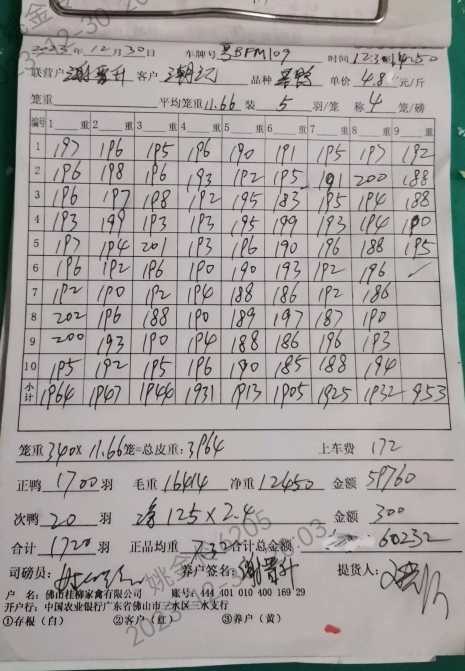 2023年12月30日 车牌号 粤BFM109 时间 12:31-14:50
联营户 谢晋升 客户 潮记 品种 单价 4.8 元/斤
笼重 平均笼重 11.66 装 5 羽/笼 称 4 笼/磅
编号 1 重 2 重 3 重 4 重 5 重 6 重 7 重 8 重 9 重
1 197 196 195 196 190 191 195 197 192
2 196 198 196 193 192 195 191 200 188
3 196 197 198 192 195 183 195 194 188
4 193 199 193 193 195 199 193 194 190
5 197 194 201 193 196 190 196 188 195
6 196 192 196 190 190 193 192 196 ✓
7 192 190 192 194 188 186 192 186
8 202 196 188 190 189 197 187 190
9 200 193 190 194 188 186 196 193
10 195 192 195 196 190 185 188 194
小计 1964 1947 1944 1931 1913 1905 1925 1932 953
笼重 340x11.66 笼=总皮重: 3964 上车费 172
正鸭 1700 羽 毛重 16414 净重 12450 金额 59760
次鸭 20 羽 125x2.4 金额 300
合计 1720 羽 正品均重 7.32 合计总金额 60232
司磅员: 养户签名: 谢晋升 提货人:
户 名: 佛山桂柳家禽有限公司 账号: 444 401 010 400 169 29
开户行: 中国农业银行广东省佛山市三水区三水支行
①存根（白） ②客户（红） ③养户（黄）